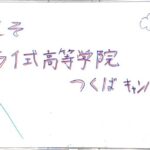 こそ
ライ式高等学院
つくば キャン